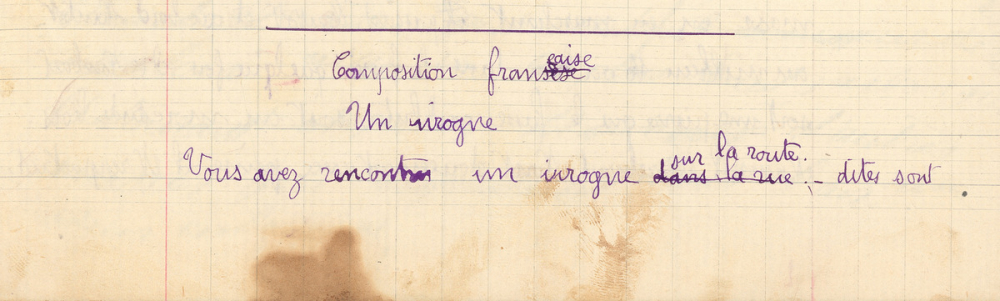 Composition francaise
Un ivrogne
Vous avez rencontré un ivrogne sur la route. – dites sont